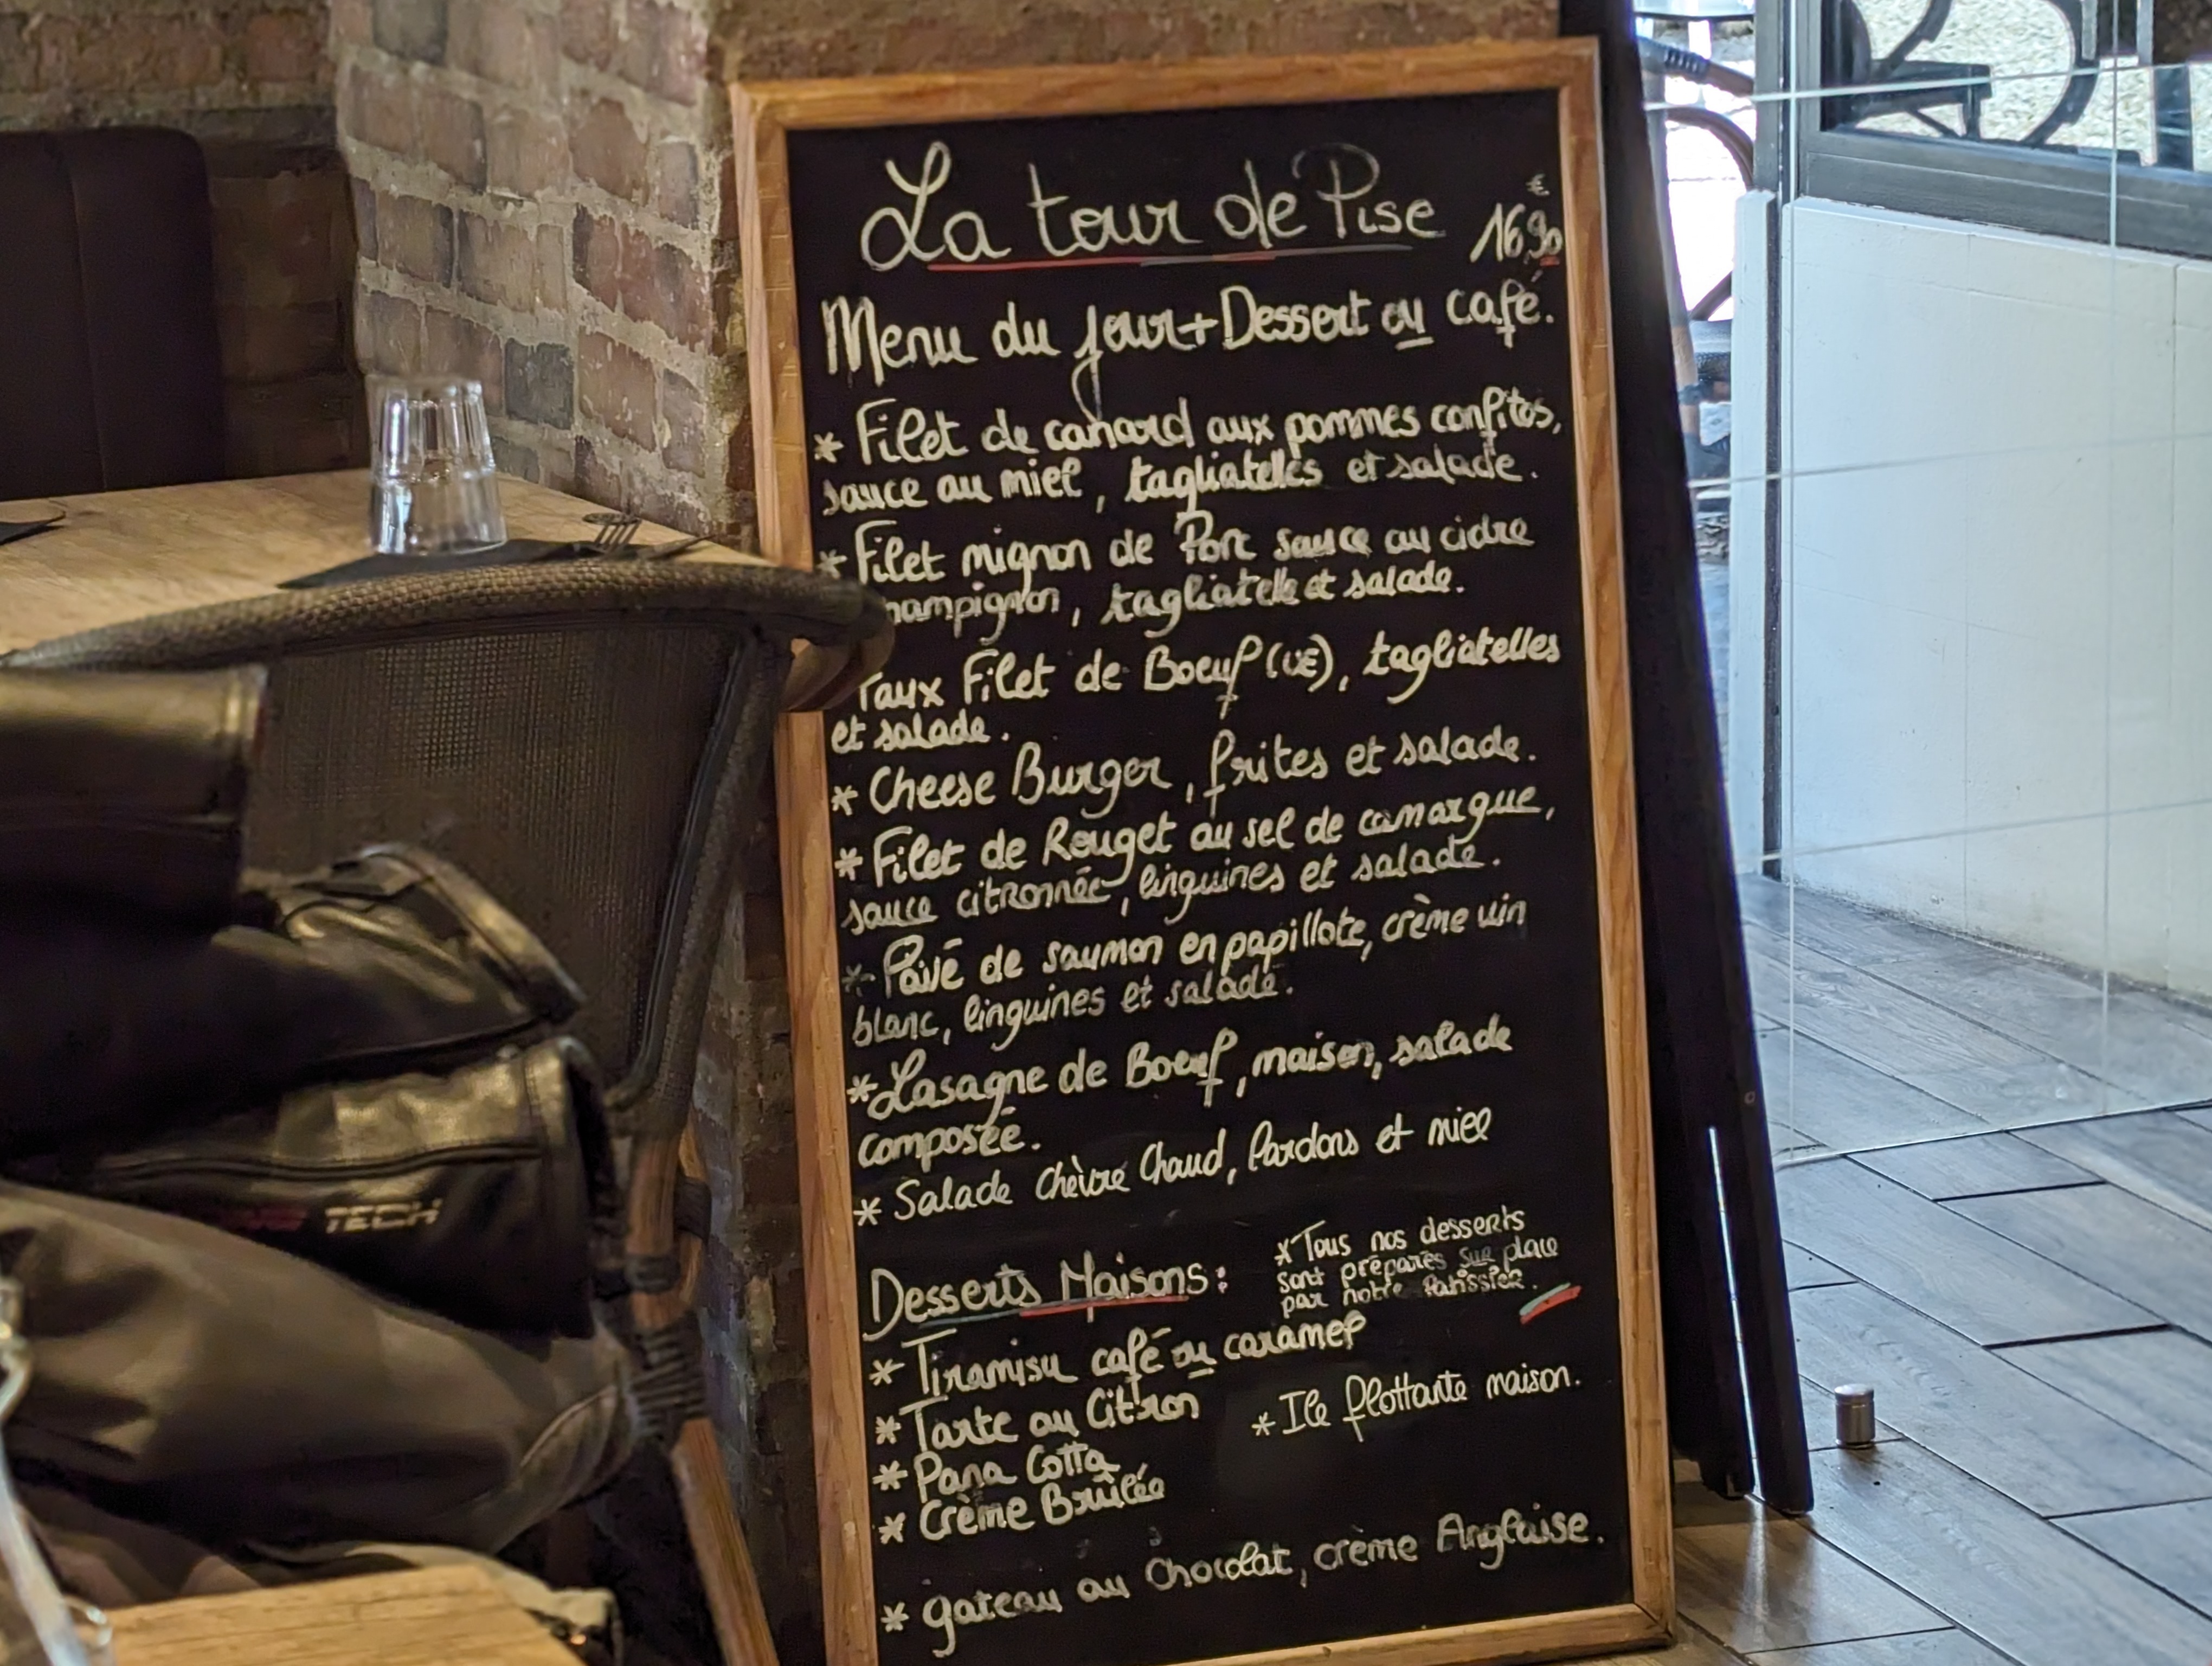 La tour de Pise
€
16,90
Menu du jour + Dessert ou café.
* Filet de canard aux pommes confites,
sauce au miel, tagliatelles et salade.
* Filet mignon de Porc sauce au cidre
hampignon, tagliatelle et salade.
Faux Filet de Boeuf (UE), tagliatelles
et salade.
* Cheese Burger, frites et salade.
* Filet de Rouget au sel de camargue,
sauce citronnée, linguines et salade.
* Pavé de saumon en papillote, crème vin
blanc, linguines et salade.
* Lasagne de Boeuf, maison, salade
composée.
* Salade Chèvre Chaud, lardons et miel
Desserts Maisons :
* Tous nos desserts
sont préparés sur place
par notre Patissier.
* Tiramisu café ou caramel
* Tarte au Citron
* Ile flottante maison.
* Pana Cotta
* Crème Brûlée
* gateau au Chocolat, crème Anglaise.
TECH